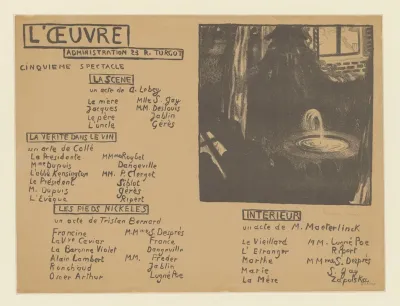 L'ŒUVRE
ADMINISTRATION R. TURGOT
CINQUIEME SPECTACLE
LA SCENE
un acte de A. Lebey
La mère Mlle S. Gay.
Jacques MM. Desfouis
Le père Jablin
L'oncle Gérès
LA VERITE DANS LE VIN
un acte de Collé
La Présidente MMmes Raybel
Mme Dupuis Dangeville
L'abbé Kensington MM. P. Clerget
Le Président
M. Dupuis Gérès
L'Evêque Ripert
LES PIEDS NICKELES
un acte de Tristan Bernard
Francine MMmes S. Després
La Vve Caviar France
La Baronne Violet Dangeville
Alain Lambert MM. Freder
Ronchaud Jablin
Omer Arthur Lugné Poe
INTERIEUR
un acte de M. Maeterlinck
Le Vieillard MM. Lugné Poe
L'Etranger Ripert
Marthe MMmes S. Després
Marie S. Gay
La Mère Zapolska